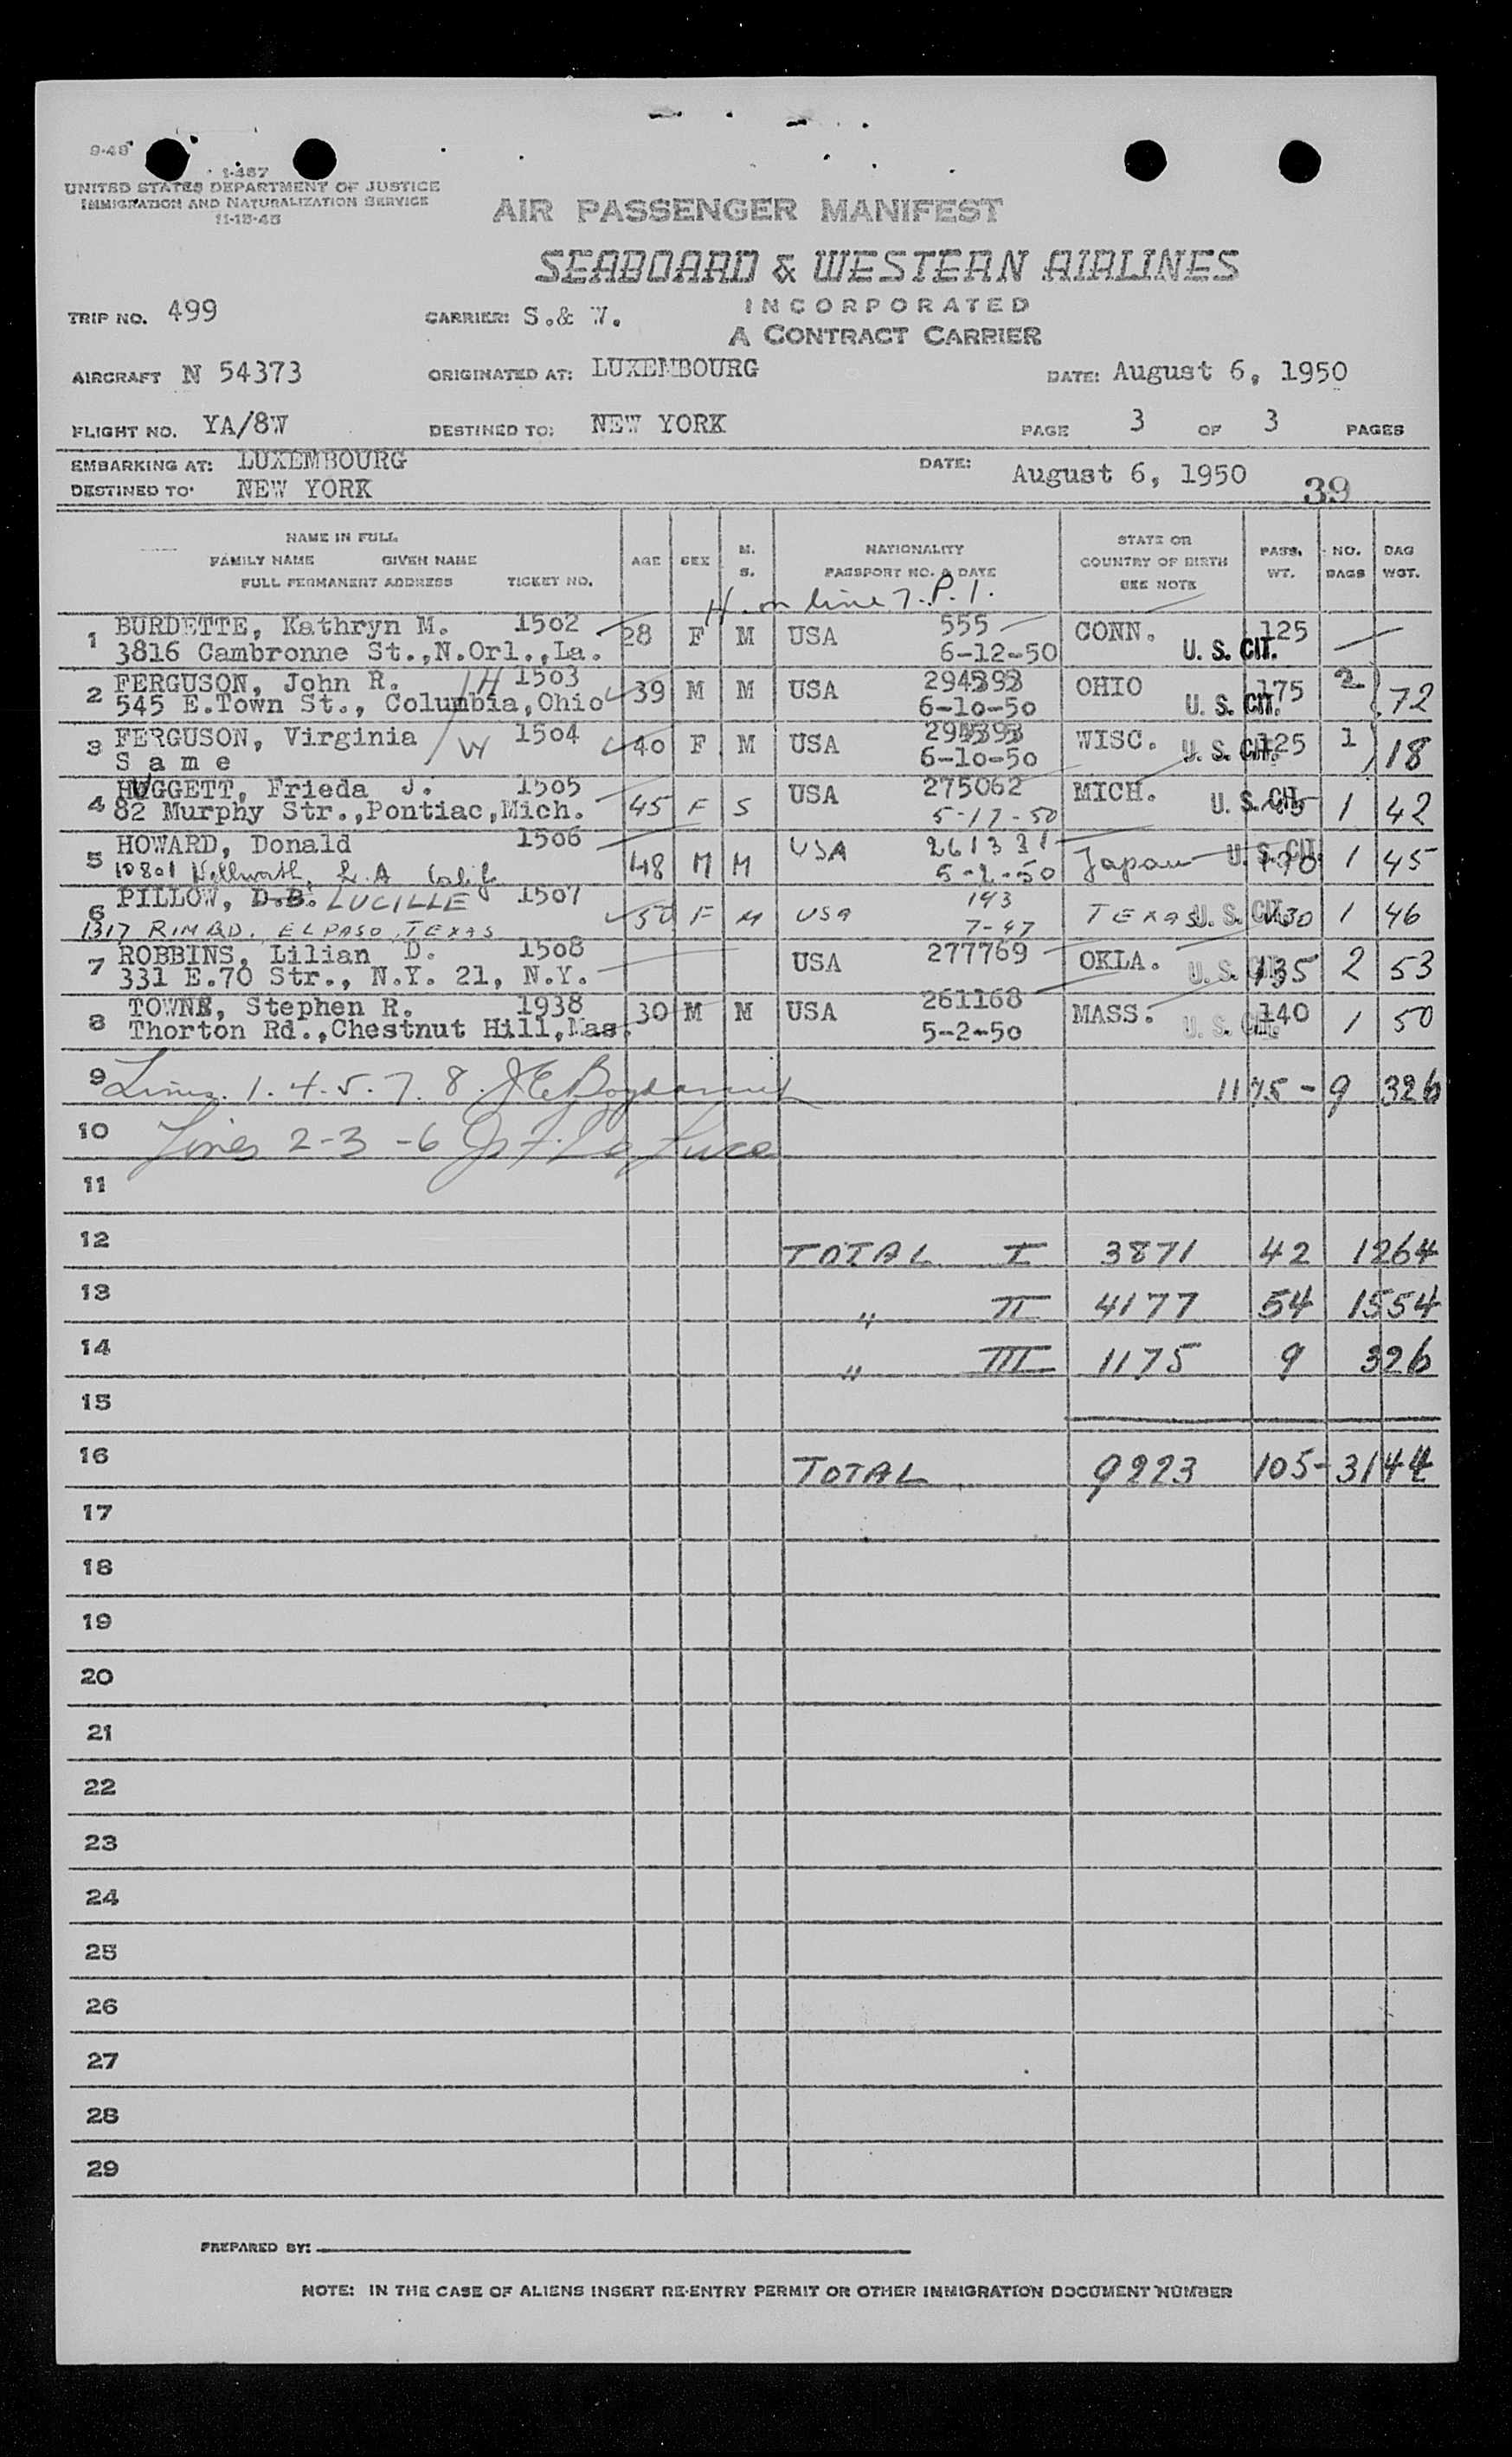 9-48
1-467
UNITED STATES DEPARTMENT OF JUSTICE
IMMIGRATION AND NATURALIZATION SERVICE
11-18-48
AIR PASSENGER MANIFEST
SEABOARD & WESTERN AIRLINES
INCORPORATED
A CONTRACT CARRIER
TRIP NO. 499 CARRIER: S.& W.
AIRCRAFT N 54373 ORIGINATED AT: LUXEMBOURG DATE: August 6, 1950
FLIGHT NO. YA/8W DESTINED TO: NEW YORK PAGE 3 OF 3 PAGES
EMBARKING AT: LUXEMBOURG DATE: August 6, 1950
DESTINED TO: NEW YORK 39
NAME IN FULL
FAMILY NAME GIVEN NAME
FULL PERMANENT ADDRESS TICKET NO. AGE SEX M. S. NATIONALITY PASSPORT NO. & DATE STATE OR COUNTRY OF BIRTH SEE NOTE PASS. WT. NO. BAGS BAG WGT.
H on line 7. P. 1.
1 BURDETTE, Kathryn M. 1502 28 F M USA 555 CONN. 125
3816 Cambronne St.,N.Orl.,La. 6-12-50 U. S. CIT.
2 FERGUSON, John R. H 1503 39 M M USA OHIO 175 2
545 E.Town St., Columbia,Ohio 6-10-50 U. S. CIT. 72
3 FERGUSON, Virginia W 1504 40 F M USA WISC. U. S. CIT. 125 1 18
S a m e 6-10-50
4 HUGGETT, Frieda J. 1505 45 F S USA 275062 MICH. U. S. CIT. 1 42
82 Murphy Str.,Pontiac,Mich. 5-17-50
5 HOWARD, Donald 1506 48 M M USA 261331 Japan U. S. CIT. 170 1 45
10801 L.A Calif 5-2-50
6 PILLOW, D.B. LUCILLE 1507 50 F M USA 193 TEXAS U. S. CIT. 130 1 46
1317 RIM RD. EL PASO, TEXAS 7-47
7 ROBBINS, Lilian D. 1508 USA 277769 OKLA. U. S. CIT. 135 2 53
331 E.70 Str., N.Y. 21, N.Y.
8 TOWNE, Stephen R. 1938 30 M M USA 261168 MASS. U. S. CIT. 140 1 50
Thorton Rd.,Chestnut Hill,Mas. 5-2-50
9 Lines. 1. 4. 5. 7. 8. 1175 - 9 326
10 Lines 2-3-6
11
12 TOTAL I 3871 42 1264
13 " II 4177 54 1554
14 " III 1175 9 326
15
16 TOTAL 9223 105- 3144
17
18
19
20
21
22
23
24
25
26
27
28
29
PREPARED BY:
NOTE: IN THE CASE OF ALIENS INSERT RE-ENTRY PERMIT OR OTHER IMMIGRATION DOCUMENT NUMBER